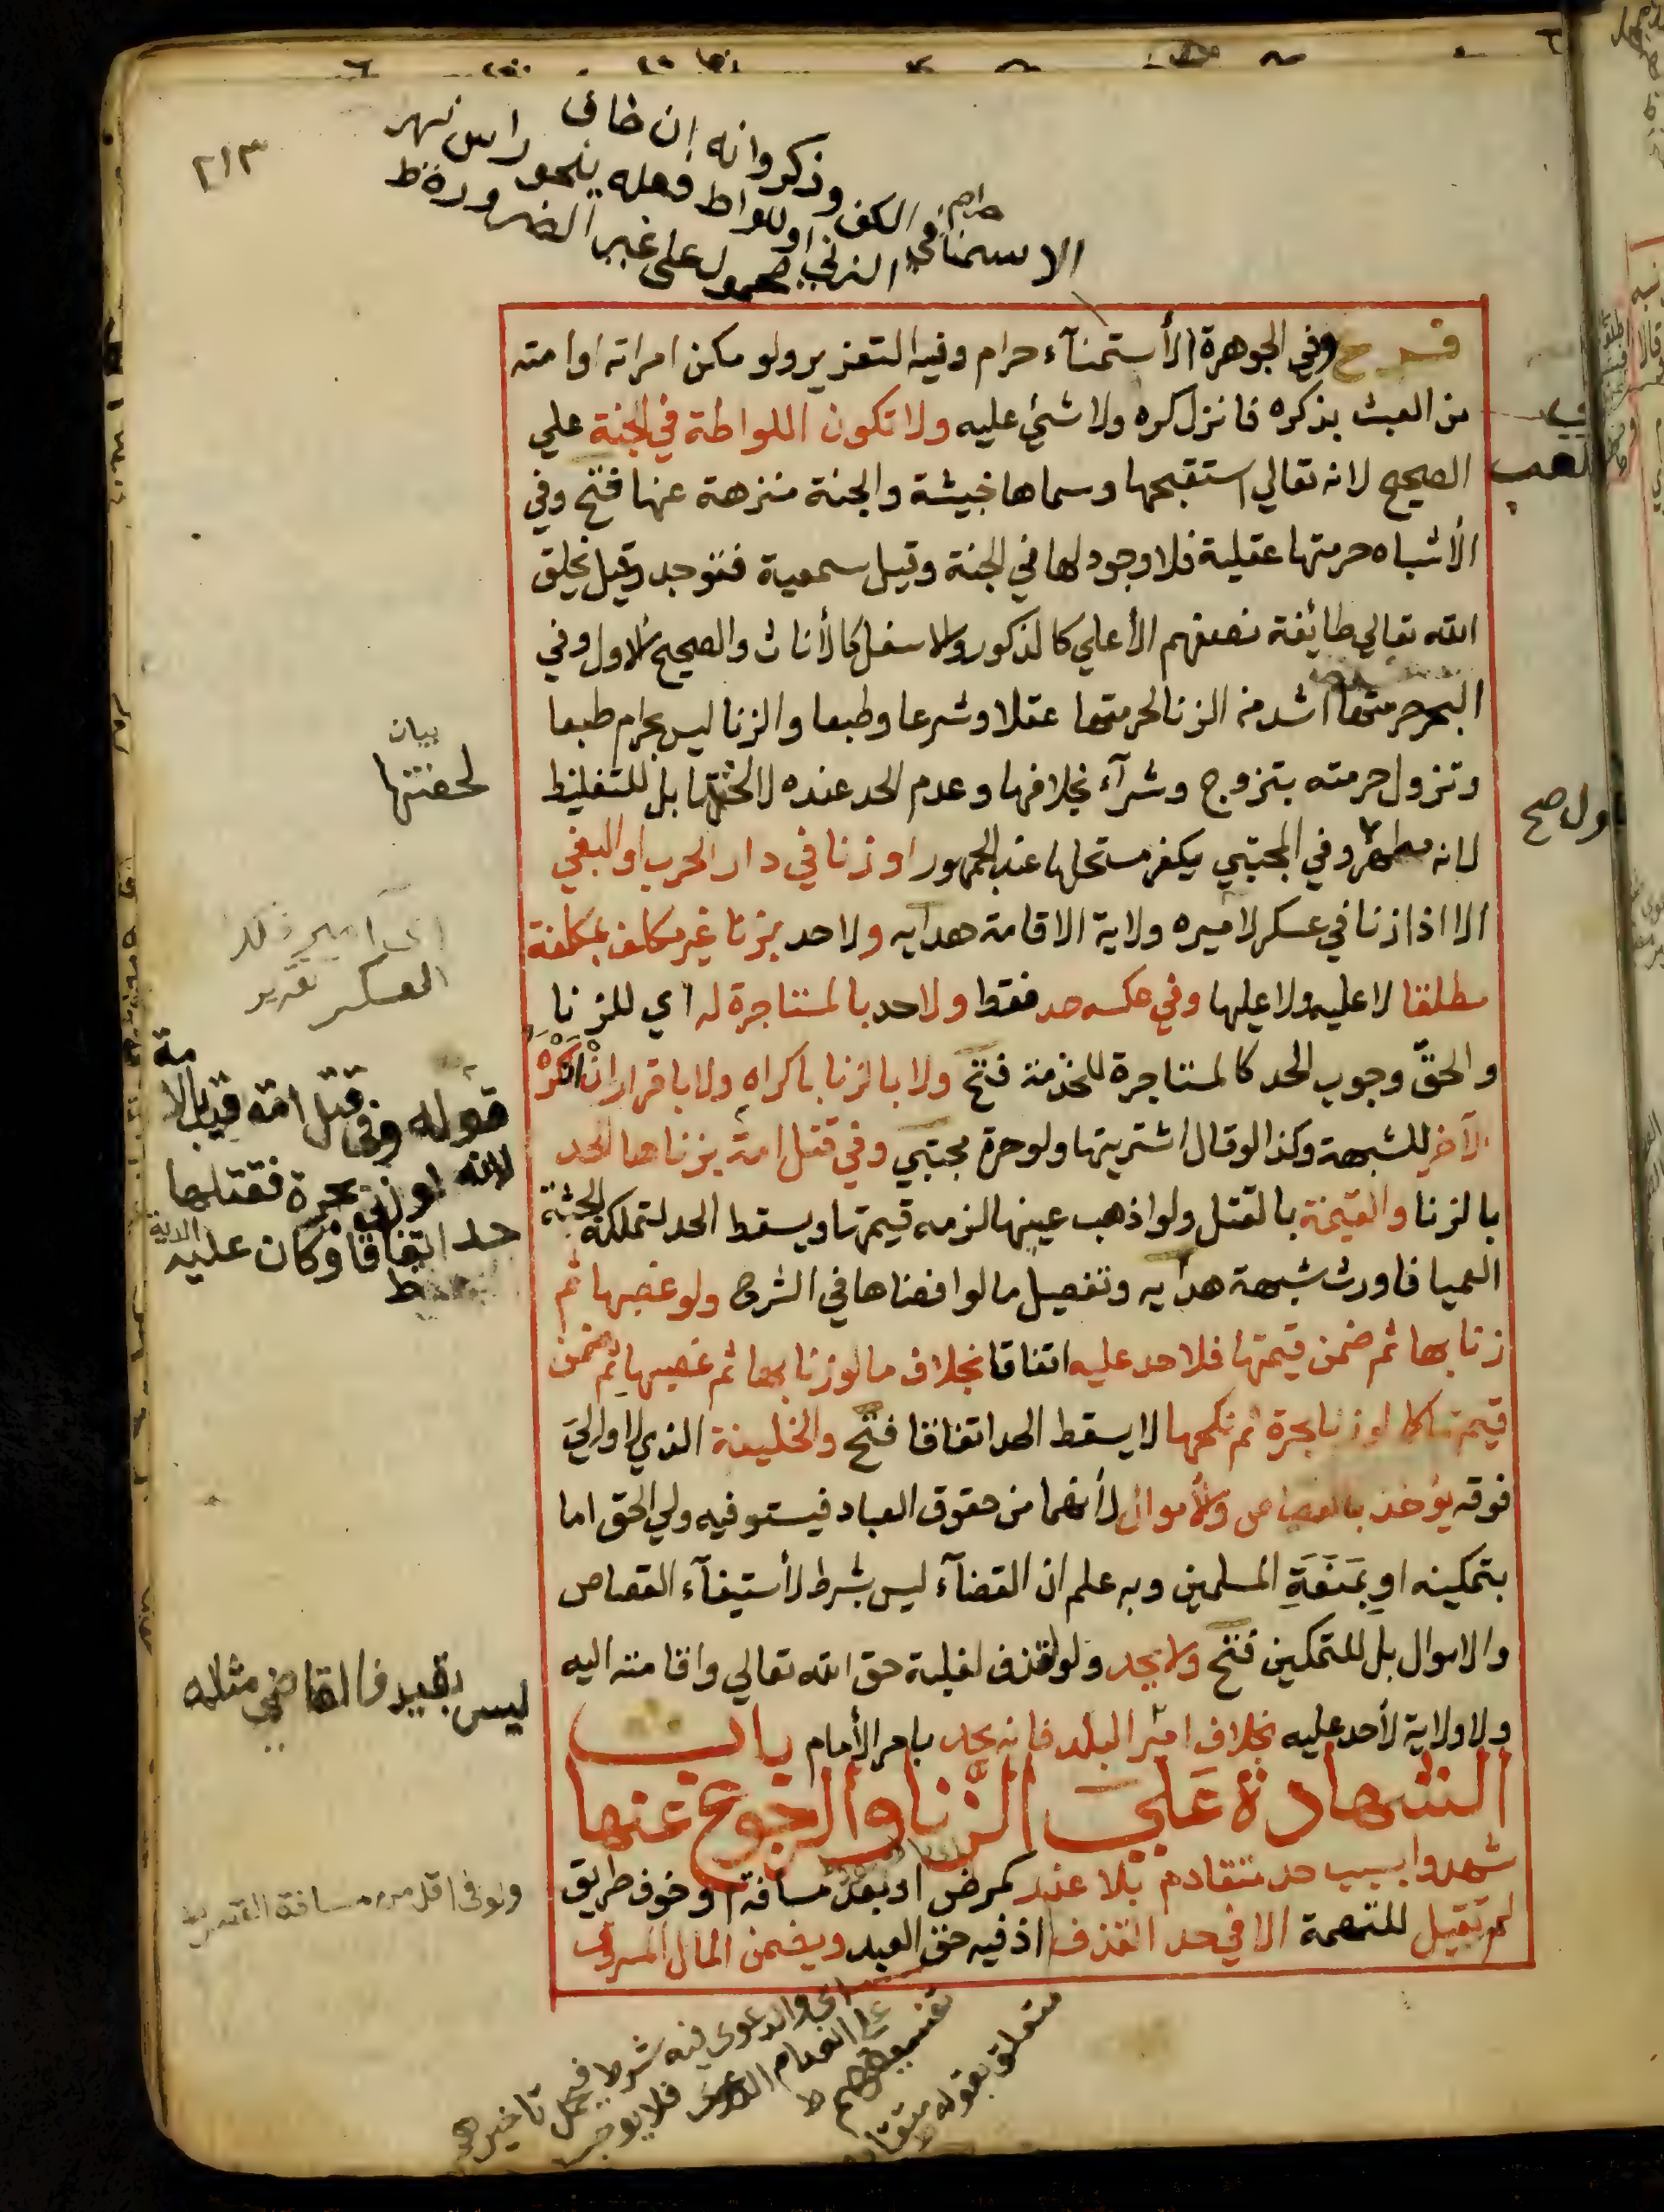 ٢١٣
وذكروا انه ان خاف
الاستمنا في الكف حرام
الزنى او اللواط
محمول على غير الضرورة ط
فرع وفي الجوهرة الأستمنآء حرام وفيه التعزير ولو مكن امراته او امته
من العبث بذكره فانزل كره ولا شئي عليه ولا تكون اللواطة في الجنة علي
الصحيح لانه تعالي استقبحها وسماها خبيثة والجنة منزهة عنها فتح وفي
الأشباه حرمتها عقلية فلا وجود لها في الجنة وقيل سمعية فتوجد وقيل يخلق
الله تعالي طائفة نصفهم الأعلي كالذكور والاسفل كالأناث والصحيح الاول وفي
البحر حرمتها اشد من الزنا لحرمتها عقلا وشرعا وطبعا والزنا ليس بحرام طبعا
وتزول حرمته بتزوج وشرآء بخلافها وعدم الحد عنده لا لخفتها بل للتغليظ
لانه مطهر وفي المجتبي يكفر مستحلها عند الجمهور او زنا في دار الحرب او البغي
الا اذا زنا في عسكر لاميره ولاية الاقامة هدايه ولا حد بزنا غير مكلف بمكلفة
مطلقا لا عليه ولا عليها وفي عكسه حد فقط ولا حد بالمستاجرة له اي للزنا
والحقّ وجوب الحد كالمستاجرة للخدمة فتح ولا بالزنا باكراه ولا باقرار ان انكره
الآخر للشبهة وكذا لو قال اشتريتها ولو حرة مجتبي وفي قتل امة بزناها الحد
بالزنا والقيمة بالقتل ولو اذهب عينها لزمه قيمتها ويسقط الحد لتملكه الجثة
العميا فاورث شبهة هدايه وتفصيل ما لو افضاها في الشرح ولو غصبها ثم
زنا بها ثم ضمن قيمتها فلا حد عليه اتفاقا بخلاف ما لو زنا بها ثم غصبها ثم ضمن
قيمتها كما لو زنا بحرة ثم نكحها لا يسقط الحد اتفاقا فتح والخليفة الذي لا والي
فوقه يؤخذ بالقصاص والأموال لأنهما من حقوق العباد فيستوفيه ولي الحق اما
بتمكينه او بمَنَعَةِ المسلمين وبه علم ان القضآء ليس بشرط لأستيفآء القصاص
والاموال بل للتمكين فتح ولا يحد ولو لقذف لغلبة حق الله تعالي واقامته اليه
ولا ولاية لأحد عليه بخلاف امير البلد فانه يحد بامر الأمام باب
الشهادة عَلي الزّنا والرجوع عنها
شهدوا بسبب حد متقادم بلا عذر كمرض او بعد مسافة او خوف طريق
لم تقبل للتهمة الا في حد القذف اذ فيه حق العبد ويضمن المال المسروق
اللعب
بيان
لخفتها
اي امير ذلك
العسكر تقرير
قوله وفي قتل امة قيد بالامة
لانه لو زنى بحرة فقتلها
حد اتفاقا وكان عليه الدية
ط
ليس بقيد فالقاضي مثله
ولو في اقل من مسافة القصر
اي والدعوى فيه شرط فيحمل تاخيرهم
على انعدام الدعوى فلا يوجب
تفسيقهم ط
متعلق بقوله